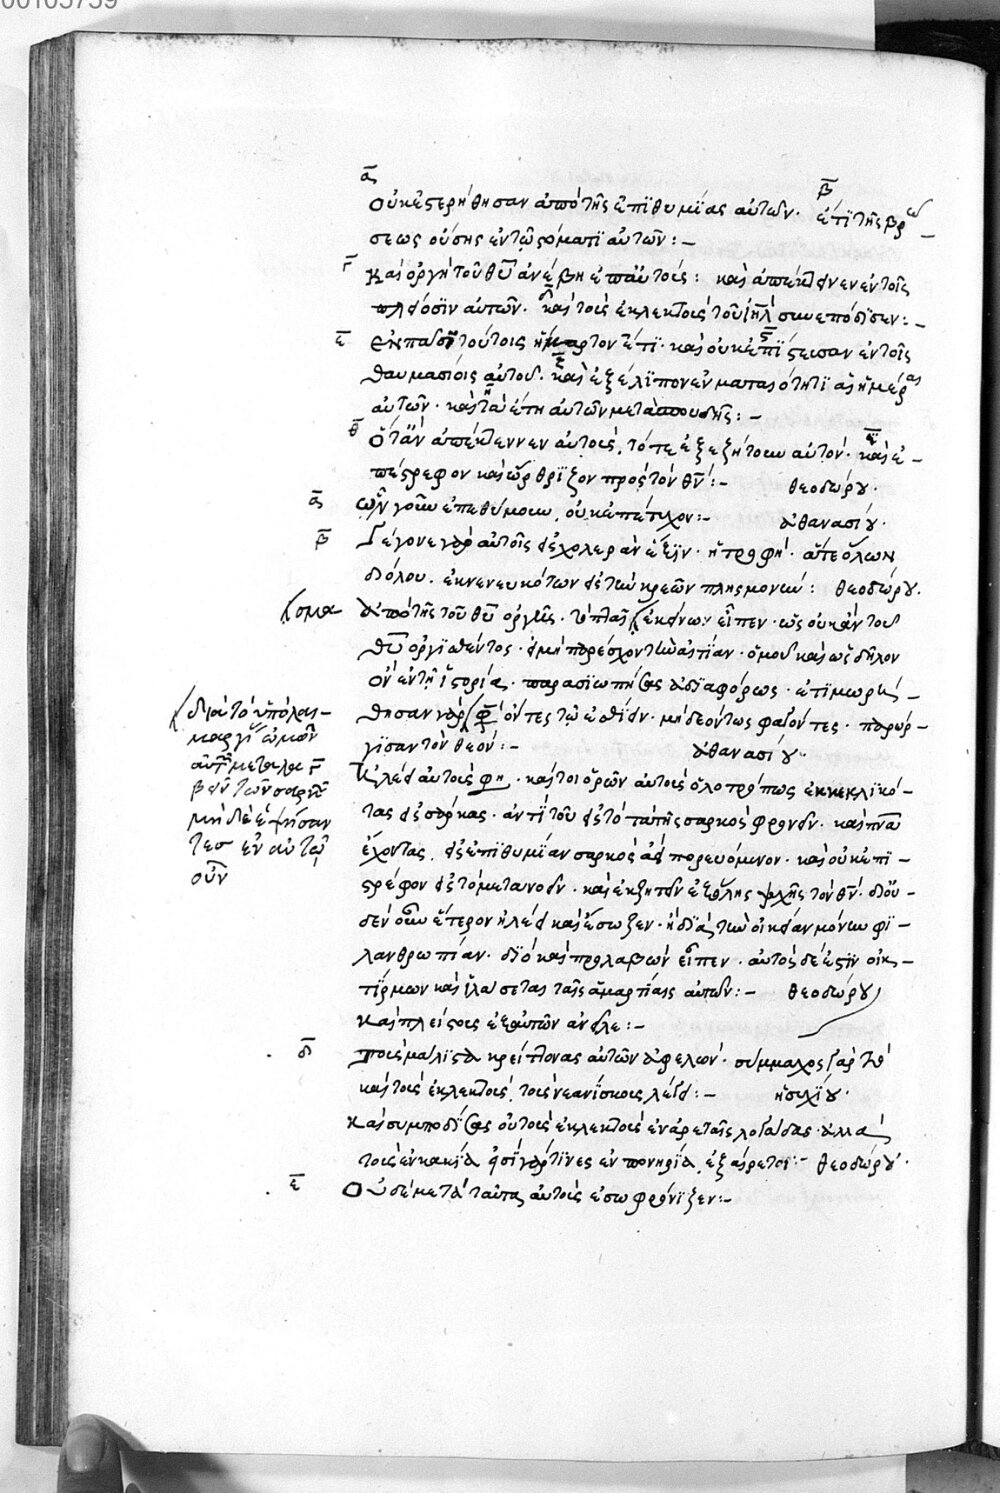 00105759
ᾱ
β̄
Οὐκ ἐστερήθησαν ἀπὸ τῆς ἐπιθυμίας αὐτῶν· ἔτι τῆς βρώ-
σεως οὔσης ἐν τῷ στόματι αὐτῶν:-
γ̄ Καὶ ὀργὴ τοῦ θῡ ἀνέβη ἐπ' αὐτούς: καὶ ἀπέκτεινεν ἐν τοῖς
πλείοσιν αὐτῶν. δ̄ καὶ τοὺς ἐκλεκτοὺς τοῦ ἰη̄λ συνεπόδισεν:-
ε̄ ἐν πᾶσι τούτοις ἥμαρτον ἔτι· καὶ οὐκ ἐπίστευσαν ἐν τοῖς
θαυμασίοις αὐτοῦ· καὶ ἐξέλιπον ἐν ματαιότητι αἱ ἡμέραι
αὐτῶν· καὶ τὰ ἔτη αὐτῶν μετὰ σπουδῆς:-
θ̄ Ὅταν ἀπέκτεννεν αὐτούς, τότε ἐξεζήτουν αὐτόν· καὶ ἐ-
πέστρεφον καὶ ὤρθριζον πρὸς τὸν θν̄:- θεοδώρου·
ᾱ ὧν γοῦν ἐπεθύμουν, οὐκ ἀπέτυχον:- ἀθανασίου·
β̄ Γέγονε γὰρ αὐτοῖς εἰς χολέραν ἕξιν· ἡ τροφή·
διόλου. ἐκνενευκότων εἰς τῶν κρεῶν πλησμονὴν: θεοδώρου.
ἀπὸ τῆς τοῦ θῡ ὀργῆς· εἶπεν· ὡς οὐκ ἂν τοῦ
θῡ ὀργισθέντος· εἰ μὴ παρέσχον τὴν αἰτίαν· ὁμοῦ καὶ ὡς δῆλον
ὂν ἐν τῇ ἱστορίᾳ· παρασιωπήσας ἀδιαφόρως· ἐτιμωρή-
θησαν γὰρ ὄντες τῷ ἐσθίειν· μὴ δεόντως φαγόντες· παρώρ-
γισαν τὸν θεόν:- ἀθανασίου·
διὰ τὸ ὑπόλαι-
Κλεὶς αὐτοὺς φη. καίτοι ὁρῶν αὐτοὺς ὁλοτρόπως ἐκκεκλικό-
τας εἰς σάρκας· ἀντὶ τοῦ εἰς τὸ τὰ τῆς σαρκὸς φρονεῖν· καὶ πνᾱ
ἔχοντας, εἰς ἐπιθυμίαν σαρκὸς ἀεὶ πορευόμενον· καὶ οὐκ ἐπι-
στρέφον εἰς τὸ μετανοεῖν· καὶ ἐκζητεῖν ἐξ ὅλης ψυχῆς τὸν θν̄· δι' οὐ-
δὲν οὖν ἕτερον ἠλέει καὶ ἔσωζεν· ἢ διὰ τὴν οἰκείαν μόνην φι-
λανθρωπίαν· διὸ καὶ προλαβὼν εἶπεν· αὐτὸς δέ ἐστιν οἰκ-
τίρμων καὶ ἱλάσεται ταῖς ἁμαρτίαις αὐτῶν:- θεοδώρου
καὶ πλείστους ἐξ αὐτῶν ἀνεῖλε:-
δ̄ τοὺς μάλιστα κρείττονας αὐτῶν ἀφελών· σύμμαχος γὰρ
καὶ τοὺς ἐκλεκτοὺς, τοὺς νεανίσκους λέγει:- ἡσυχίου·
Καὶ συμποδίσας οὐ τοὺς ἐκλεκτοὺς ἐν ἀρεταῖς λογάδας· ἀλλὰ
τοὺς ἐν κακίᾳ· εἰσὶ γάρ τινες ἐν πονηρίᾳ ἐξαίρετοι:- θεοδώρου·
ε̄ Οὐδὲ μετὰ ταῦτα αὐτοὺς ἐσωφρόνιζεν:-